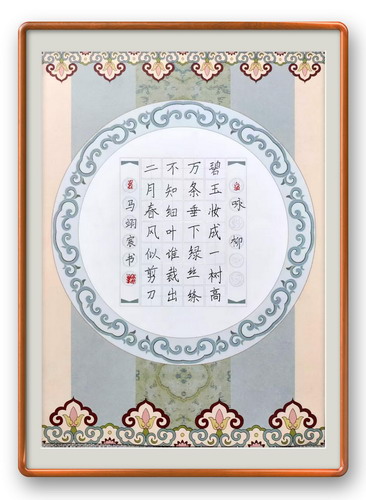 咏柳
碧玉妆成一树高
万条垂下绿丝绦
不知细叶谁裁出
二月春风似剪刀
马翊宸书